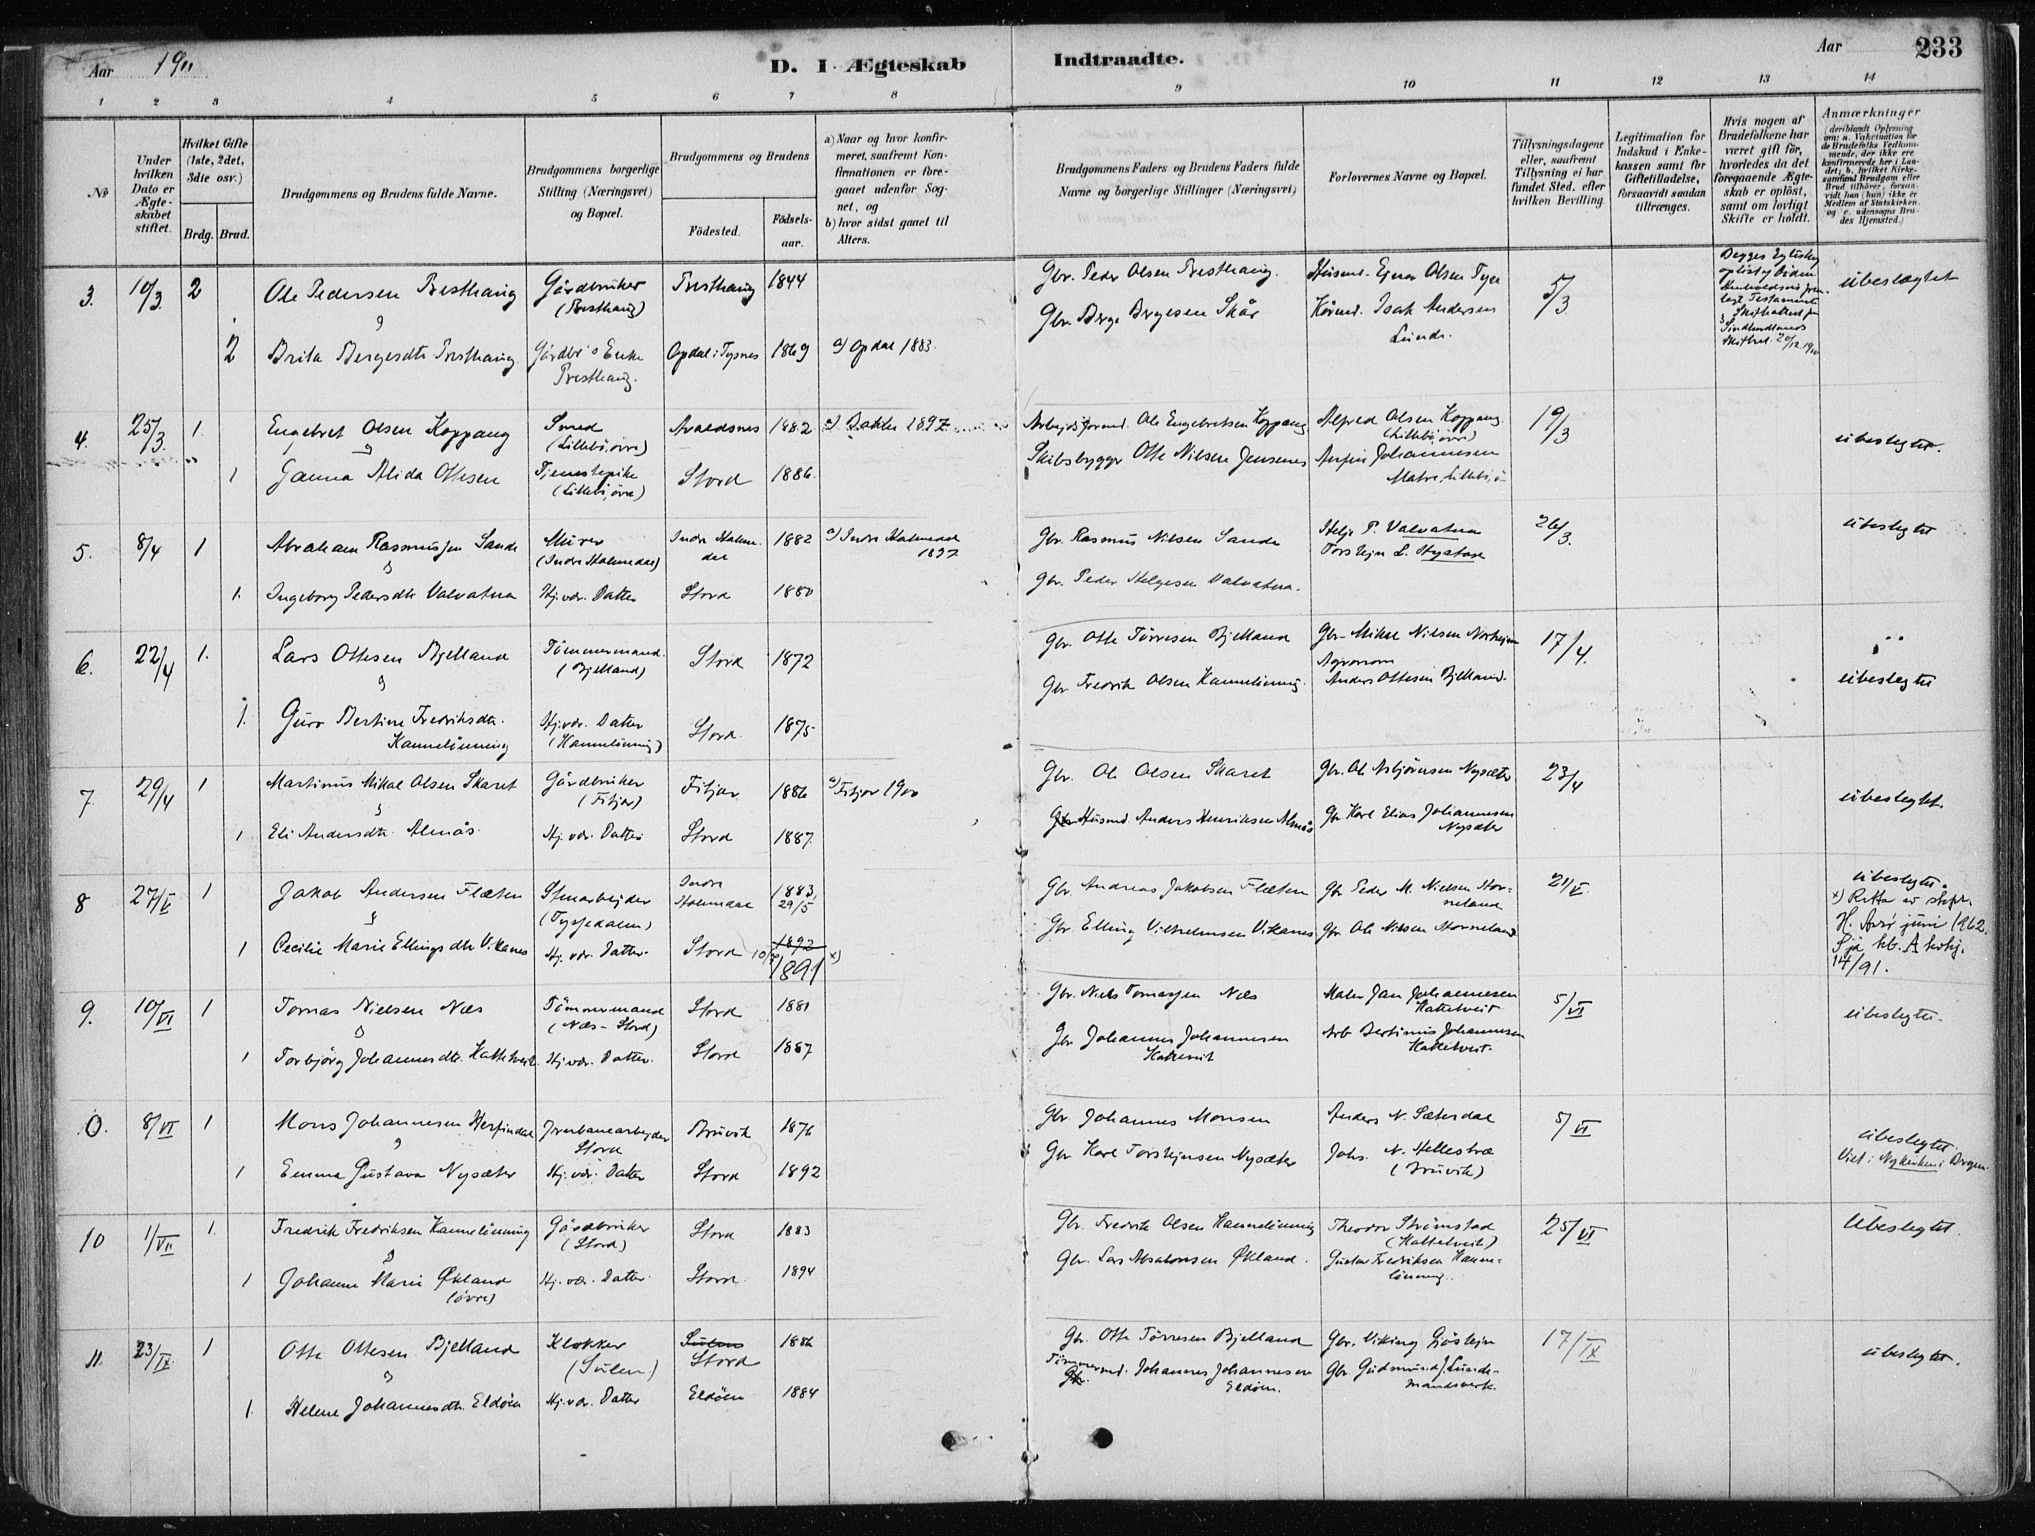 Aar 1911
D. I Ægteskab Indtraadte.
Aar
233
1 2 3 4 5 6 7 8 9 10 11 12 13 14
No
Under hvilken Dato er Ægteskabet stiftet.
Hvilket Gifte (1ste, 2det, 3die osv.)
Brdg. Brud.
Brudgommens og Brudens fulde Navne.
Brudgommens borgerlige Stilling (Næringsvei) og Bopæl.
Brudgommens og Brudens
Födested.
Födselsaar.
a) Naar og hvor konfirmeret, saafremt Konfirmationen er foregaaet udenfor Sognet, og
b) hvor sidst gaaet til Alters.
Brudgommens Faders og Brudens Faders fulde Navne og borgerlige Stillinger (Næringsvei)
Forlovernes Navne og Bopæl.
Tillysningsdagene eller, saafremt Tillysning ei har fundet Sted, efter hvilken Bevilling.
Legitimation for Indskud i Enkekassen samt for Giftetilladelse, forsaavidt saadan tiltrænges.
Hvis nogen af Brudefolkene har været gift för, hvorledes da det foregaaende Ægteskab er oplöst, samt om lovligt Skifte er holdt.
Anmærkninger
3. 10/3 2 Ole Pedersen Presthaug Gårdbruker (Presthaug) Presthaug 1844 Gbr. Peder Olsen Presthaug. Husmd. Olsen Tyse 5/3 ubeslægtet
2 Brita Bergesdtr Presthaug Gårdbr's Enke Presthaug. Opdal i Tysnes 1869 a) Opdal 1883. Gbr. Berge Bergesen Skår Isak Andersen Lunde.
4. 25/3 1. Engebret Olsen Koppang Smed (Lillebö, övre) Avaldsnes 1882 1897 Ole Engebretsen Koppang Alfred Olsen Koppang (Lillebö, övre) 19/3 ubeslegtet.
1 Janna Alida Ottesen Tjenestepike (Lillebö, övre) Stord 1886. Skibsbygger Otte Nilsen Jensenes Johannesen Matre, Lillebö, ö
5. 8/4 1 Abraham Rasmussen Sande Murer (Indre Holmedal) Indre Holmedal 1882 a) Indre Holmedal 1897 Gbr. Rasmus Nilsen Sande Helje P. Valvatna Torstejn L. Hystad 26/3. ubeslegtet
1. Ingeborg Pedersdtr Valvatna Hj.vær. Datter Stord 1880 Gbr. Peder Helgesen Valvatna.
6. 22/4 1. Lars Ottesen Bjelland Tömmermand. (Bjelland) Stord 1872 Gbr. Otte Törresen Bjelland Gbr. Mikal Nilsen 17/4. ubeslegtet
1. Guro Bertine Fredriksdtr. Hannelönning Hj.vær. Datter (Hannelönning) Stord. 1875 Gbr Fredrik Olsen Hannelönning. Agronom Anders Ottesen Bjelland.
7. 29/4 1 Martinus Mikal Olsen Skaret Gårdbruker (Fitjar) Fitjar 1886 a) Fitjar 1900 Gbr. Ole Olsen Skaret Gbr. Ole Asbjörnsen Nysæter 23/4 ubeslegtet.
1 Eli Andersdtr. Almås. Hj.vær. Datter Stord 1887. Husmd. Anders Henriksen Almås Gbr Karl Elias Johannesen Nysæter
8 27/V 1 Jakob Andersen Flæten Stenarbejder (Tyssedalen) Indre Holmedal 1883, 29/5 Gbr Andreas Jakobsen Flæten Gbr Peder M. Nielsen Horneland 21/V. ubeslegtet.
x) Retta av
H. juni 1962.
Sjå kb. A
14/91.
1 Cecilie Marie Ellingsdtr Vikanes Hj.vær. Datter. Stord 1892 1891 x) Gbr Elling Vilhelmsen Vikanes Gbr Ole Nilsen Horneland
9. 10/VI 1 Tomas Nielsen Næs Tömmermand (Næs-Stord) Stord 1881 Gbr. Niels Tomassen Næs Maler Jan Johannesen Hatteveit 5/VI ubeslegtet.
1 Torbjörg Johannesdtr. Hatteveit Hj.vær. Datter. Stord 1887 Gbr Johannes Johannesen Hatteveit Arb Bertinius Johannesen Hatteveit.
0. 8/VI 1 Mons Johannesen Herfindal Jernbanearbejder Stord Bruvik 1876 Gbr. Johannes Monsen Anders N. Sæterdal 5/VI ubeslegtet.
Viet i Nykirken i Bergen.
1 Emma Gustava Nysæter Hj.vær. Datter Stord 1892 Gbr Karl Torstejnsen Nysæter Johs. N. Hellestræ (Bruvik)
10 1/VII 1. Fredrik Fredriksen Hannelönning Gårdbruker (Stord) Stord 1883 Gbr. Fredrik Olsen Hannelönning Theodor Strömstad (Hatteveit) 25/VI Ubeslegtet.
1 Johanne Marie Økland (övre) Hj.vær. Datter. Stord. 1894 Gbr. Lars Absalonsen Økland. Gustav Fredriksen Hannelönning.
11. 23/IX. 1 Otte Ottesen Bjelland Klokker (Sulen) Sulen Stord 1886 Gbr. Otte Törresen Bjelland Gbr. Viking 17/IX ubeslegtet.
1. Helene Johannesdtr. Eldöen Hj.vær. Datter Eldöen 1884 Tömmermd. Johannes Johannesen Eldöen. Gbr Gudmund J. Lundsmandsverk.